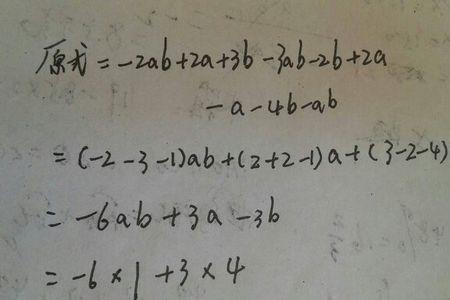 原式=-2ab+2a+3b-3ab-2b+2a
-a-4b-ab
=(-2-3-1)ab+(2+2-1)a+(3-2-4)
=-6ab+3a-3b
=-6×1+3×4